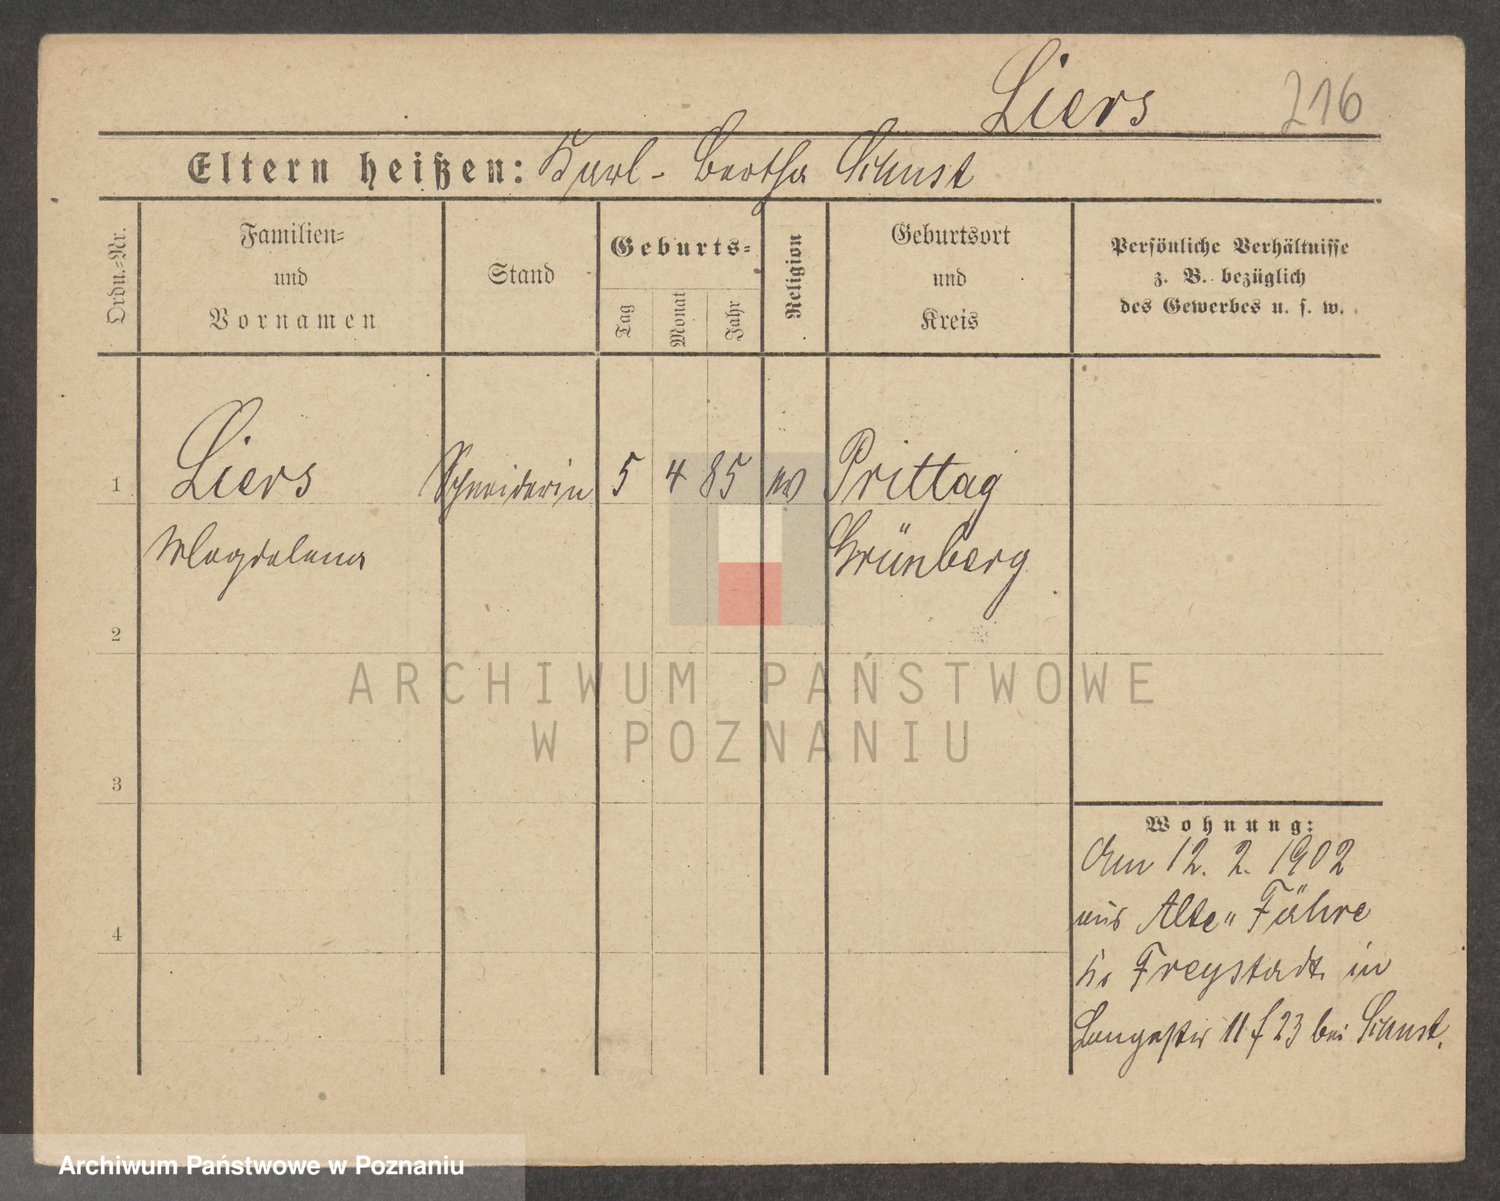 Liers 216
Eltern heißen: Karl - Bertha Schust
Ordn.-Nr.
Familien-
und
Vornamen
Stand
Geburts-
Tag
Monat
Jahr
Religion
Geburtsort
und
Kreis
Persönliche Verhältnisse
z. B. bezüglich
des Gewerbes u. s. w.
1 Liers Schneiderin 5 4 85 ev Prittag
Magdalena Grünberg
2
3
4
Wohnung:
Am 12. 2. 1902
aus Alte" Fähre
Kr Freystadt in
Langestr 11 f 23 bei Schust.
ARCHIWUM PAŃSTWOWE
W POZNANIU
Archiwum Państwowe w Poznaniu